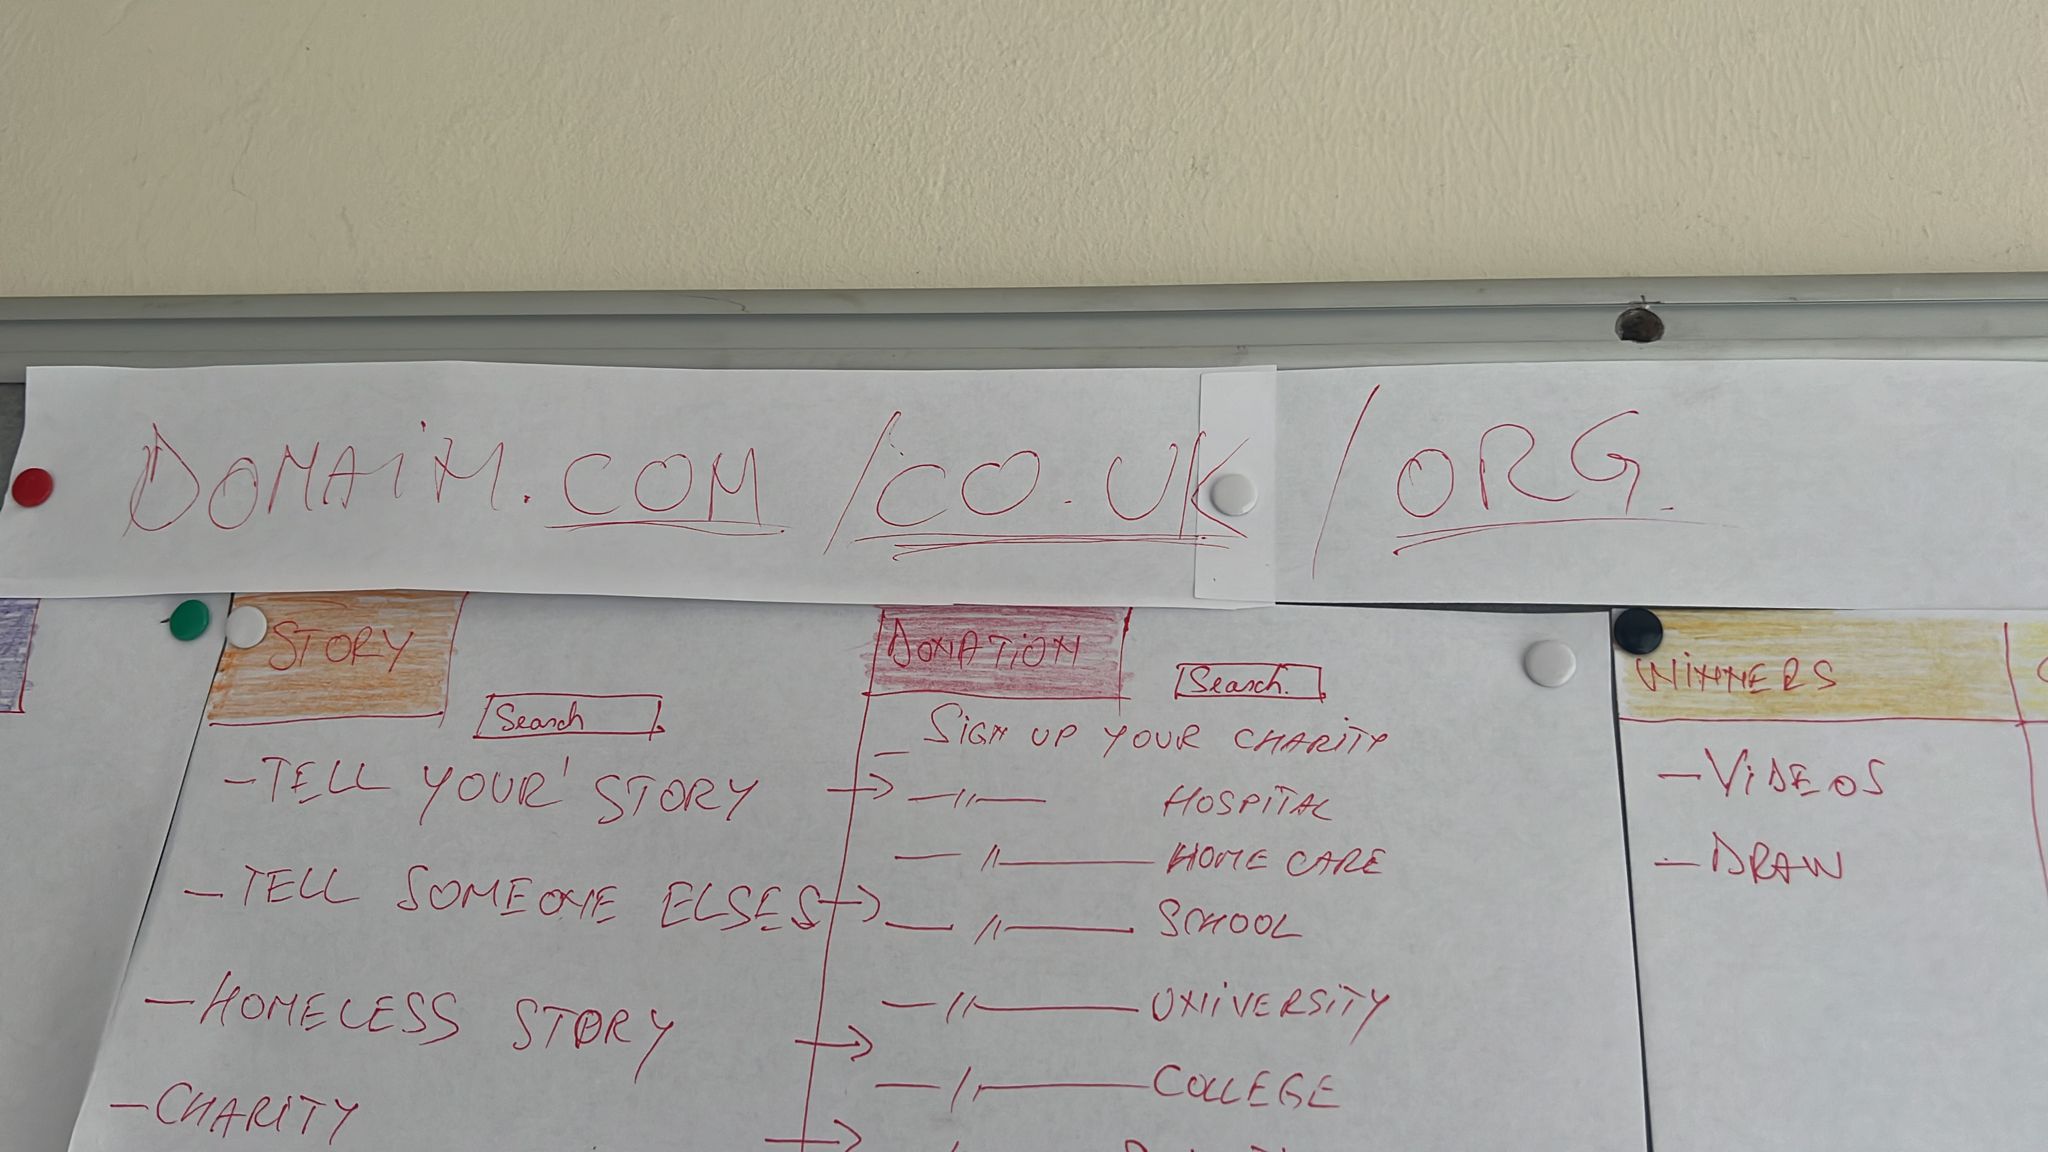 DOMAIN.COM /CO.UK /ORG.
STORY
Search
- TELL YOUR STORY →
- TELL SOMEONE ELSES →
- HOMELESS STORY →
- CHARITY →
DONATION
Search.
- SIGN UP YOUR CHARITY
— 〃 — HOSPITAL
— 〃 — HOME CARE
— 〃 — SCHOOL
— 〃 — UNIVERSITY
— 〃 — COLLEGE
WINNERS
- VIDEOS
- DRAW